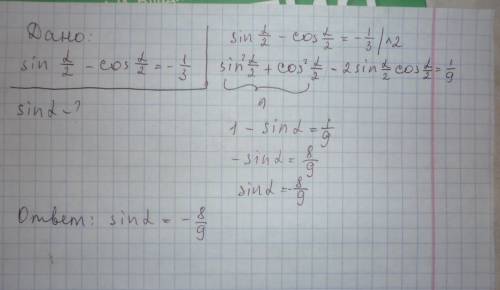 Дано:
sin α/2 - cos α/2 = - 1/3
sin α - ?
sin α/2 - cos α/2 = - 1/3 / ^2
sin² α/2 + cos² α/2 - 2 sin α/2 cos α/2 = 1/9
1
1 - sin α = 1/9
- sin α = 8/9
sin α = - 8/9
Ответ: sin α = - 8/9